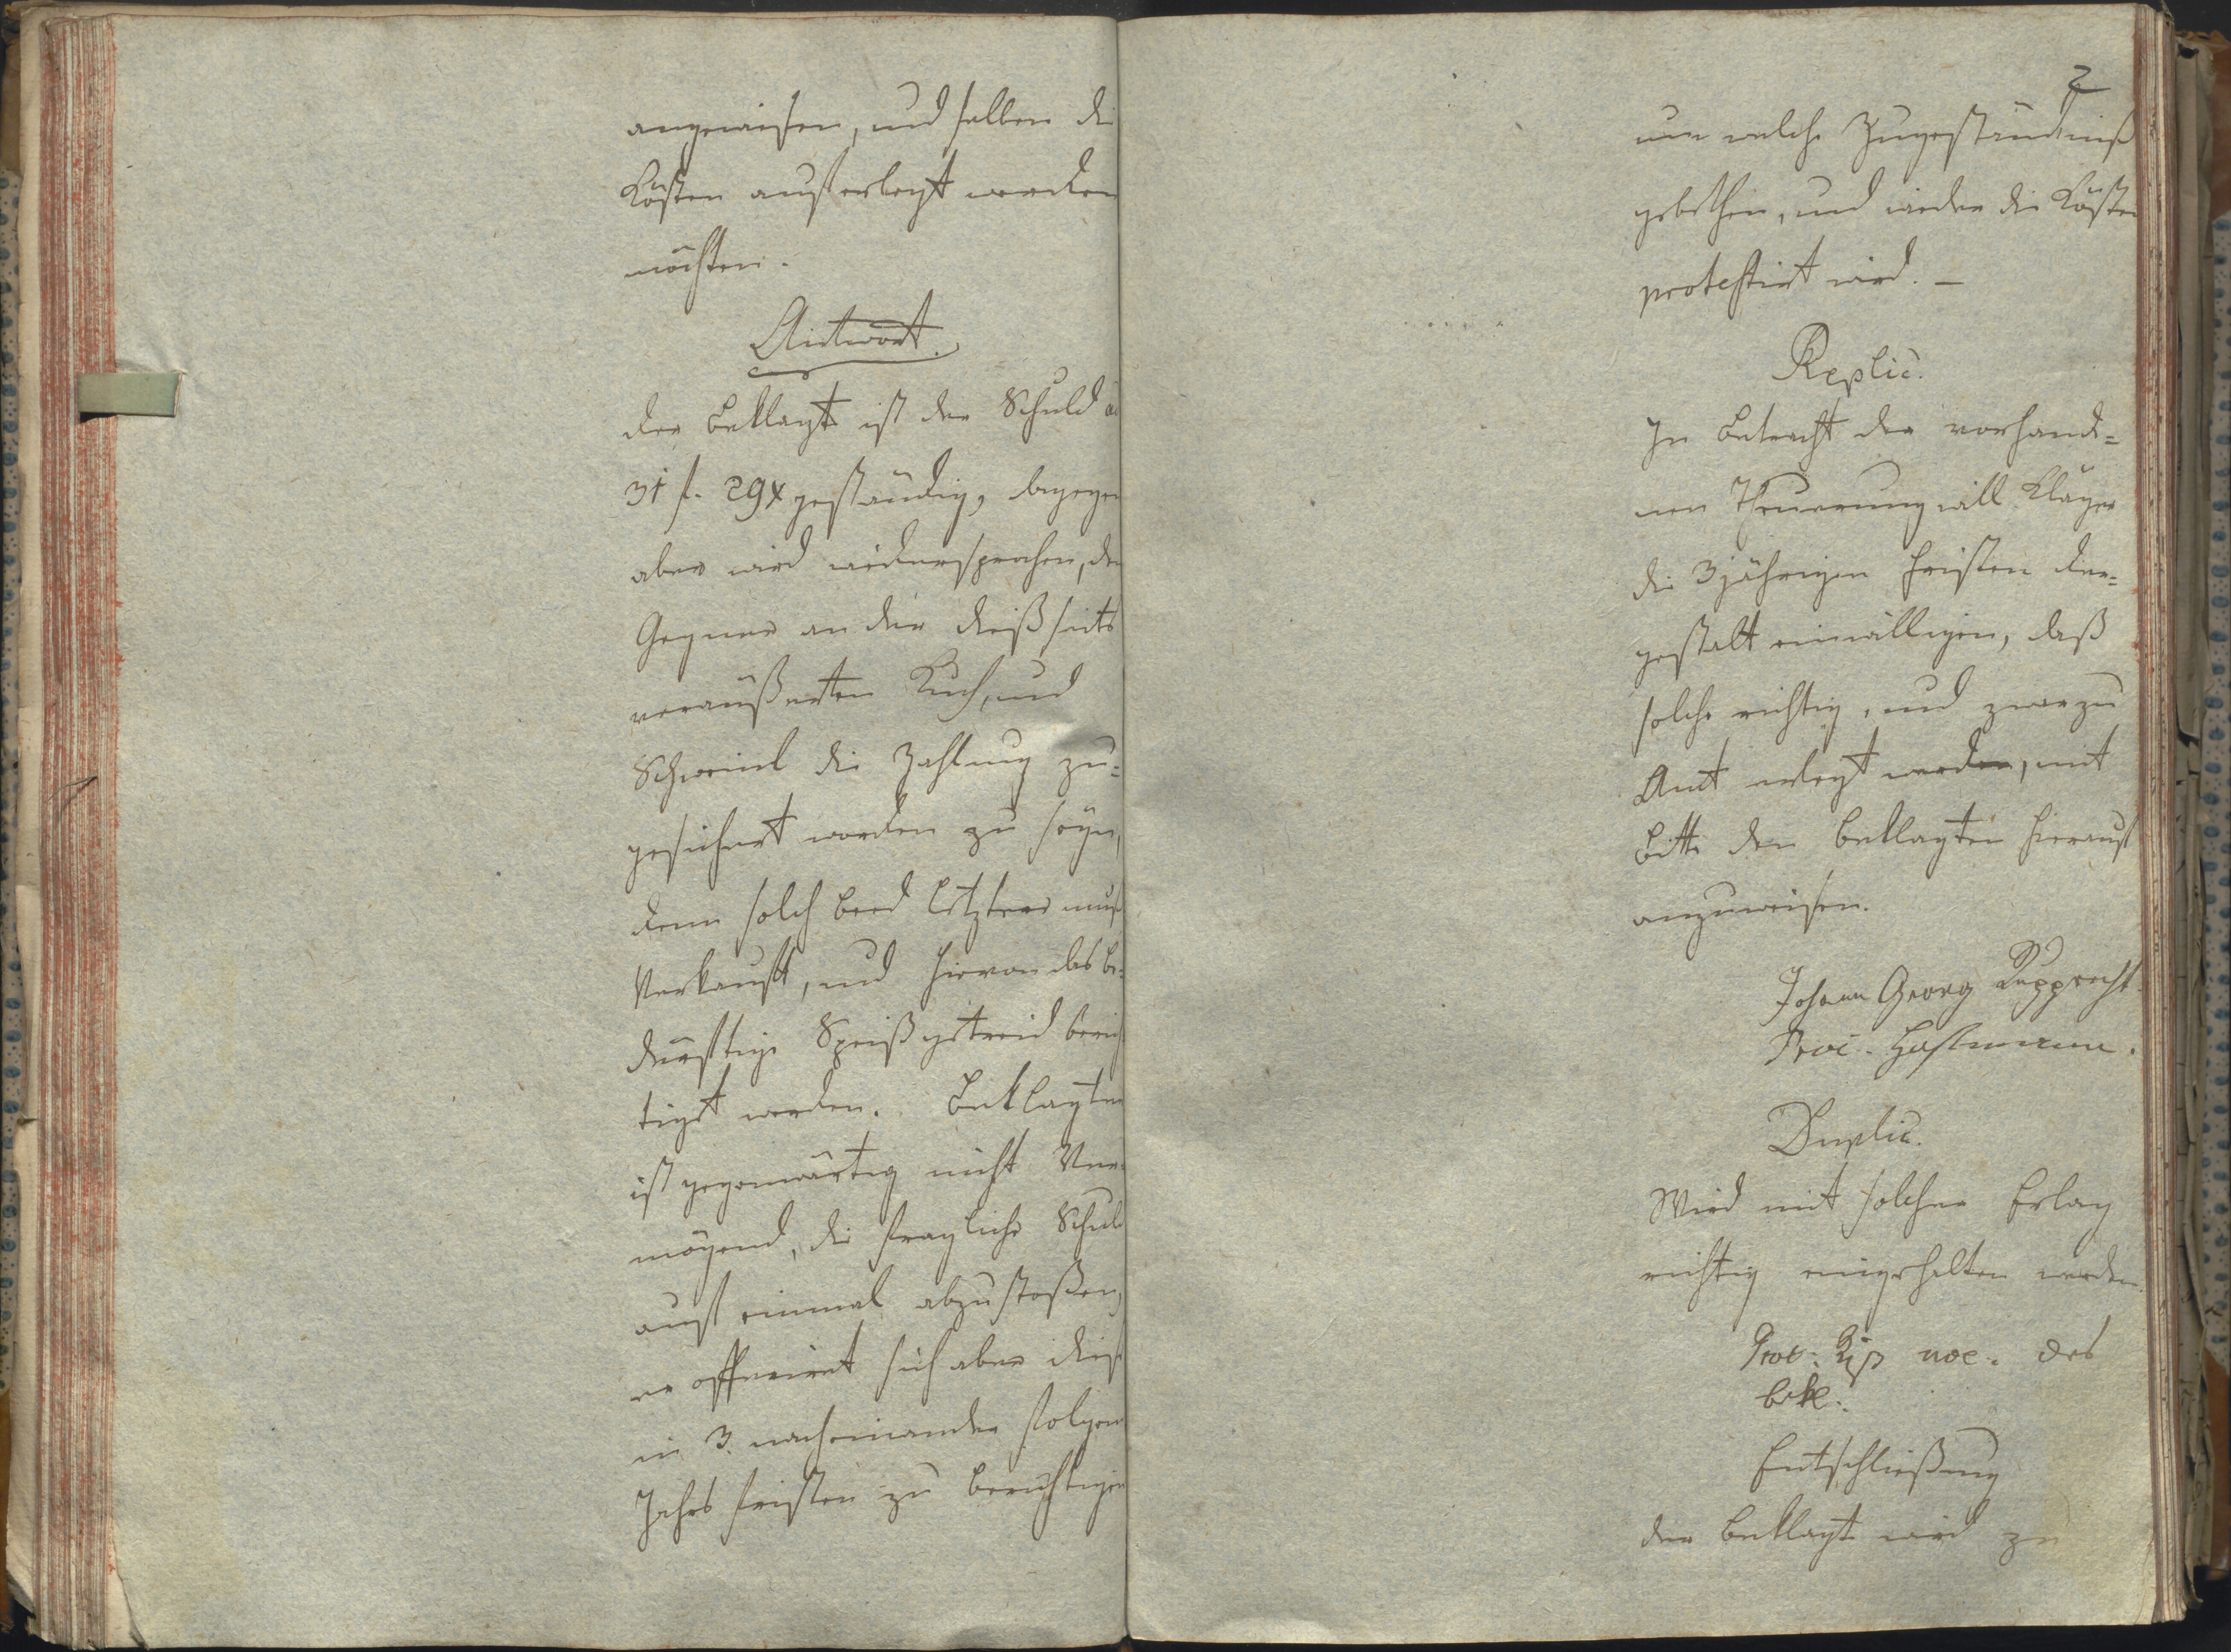 angewiesen, und selben die
Kösten auferlegt werden
möchten.
Antwort.
Der Beklagte ist der Schuld a
31 f. 29 x geständig, dagegen
aber wird widersprochen, dem
Gegner an der dießseits
veräußerten Kuh, und
Schweinl die Zahlung zu=
gesichert worden zu seyn,
denn solch beed letztere muß
Verkauft, und hievon das be=
dürftige Speißgetreid berich
tigt werden. Beklagter
ist gegenwärtig nicht Ver=
mögend, die fragliche Schuld
auf einmal abzustoßen,
er offerirt sich aber diese
in 3. nacheinander folgen
Jahrs fristen zu berichtigen
2
um welche Zugeständniß
gebethen, und wider die Kösten
protestirt wird. —
Replic.
In Betracht der vorhande=
nen Theuerung will Kläger
die 3jährigen Fristen der=
gestalt einwilligen, daß
solche richtig, und zwar zu
Amt erlegt werden, mit
Bitte den Beklagten hierauf
anzuweisen.
Johann Georg Rupprecht
Proc. Hastmann.
Duplic.
Wird mit solcher Erlag
richtig eingehalten werden
Proc. noe. des
Bekl.
Entschließung
Der Beklagte wird zu